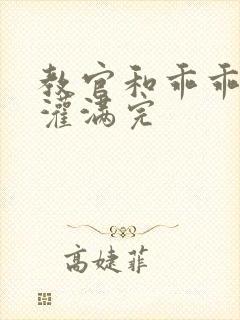 教官和乖乖
灌满完
高婕菲